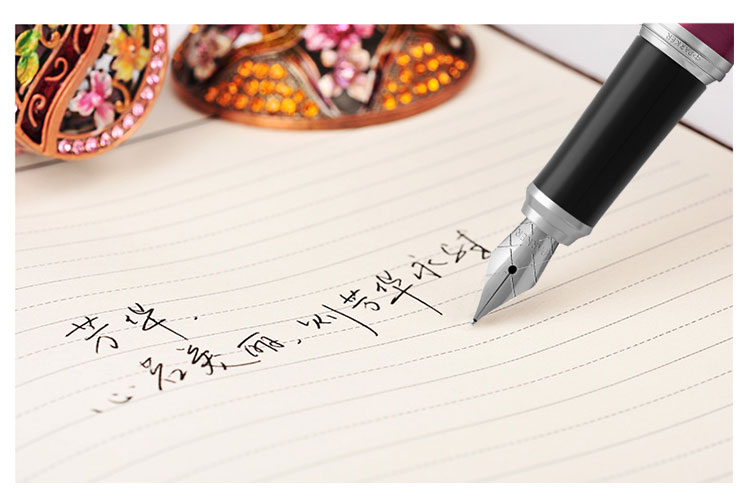 芳华.
心若美丽、则芳华永驻
PARKER
PARKER